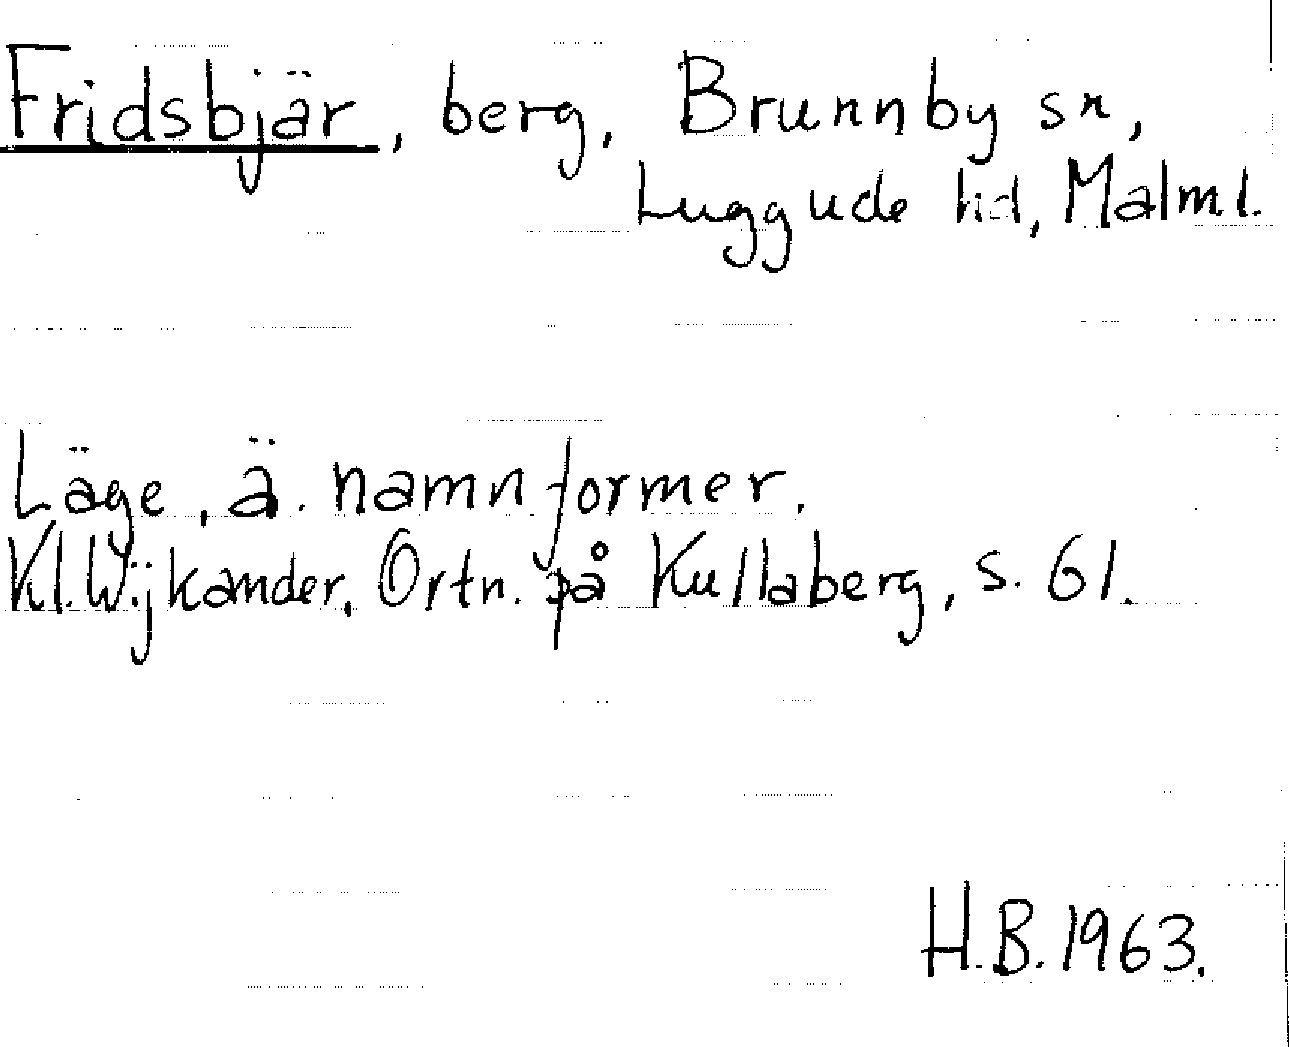 Fridsbjär, berg, Brunnby sn,
Luggude hd, Malml.
Läge, ä. namnformer.
Kl. Wijkander, Ortn. på Kullaberg, s. 61.
H.B. 1963.